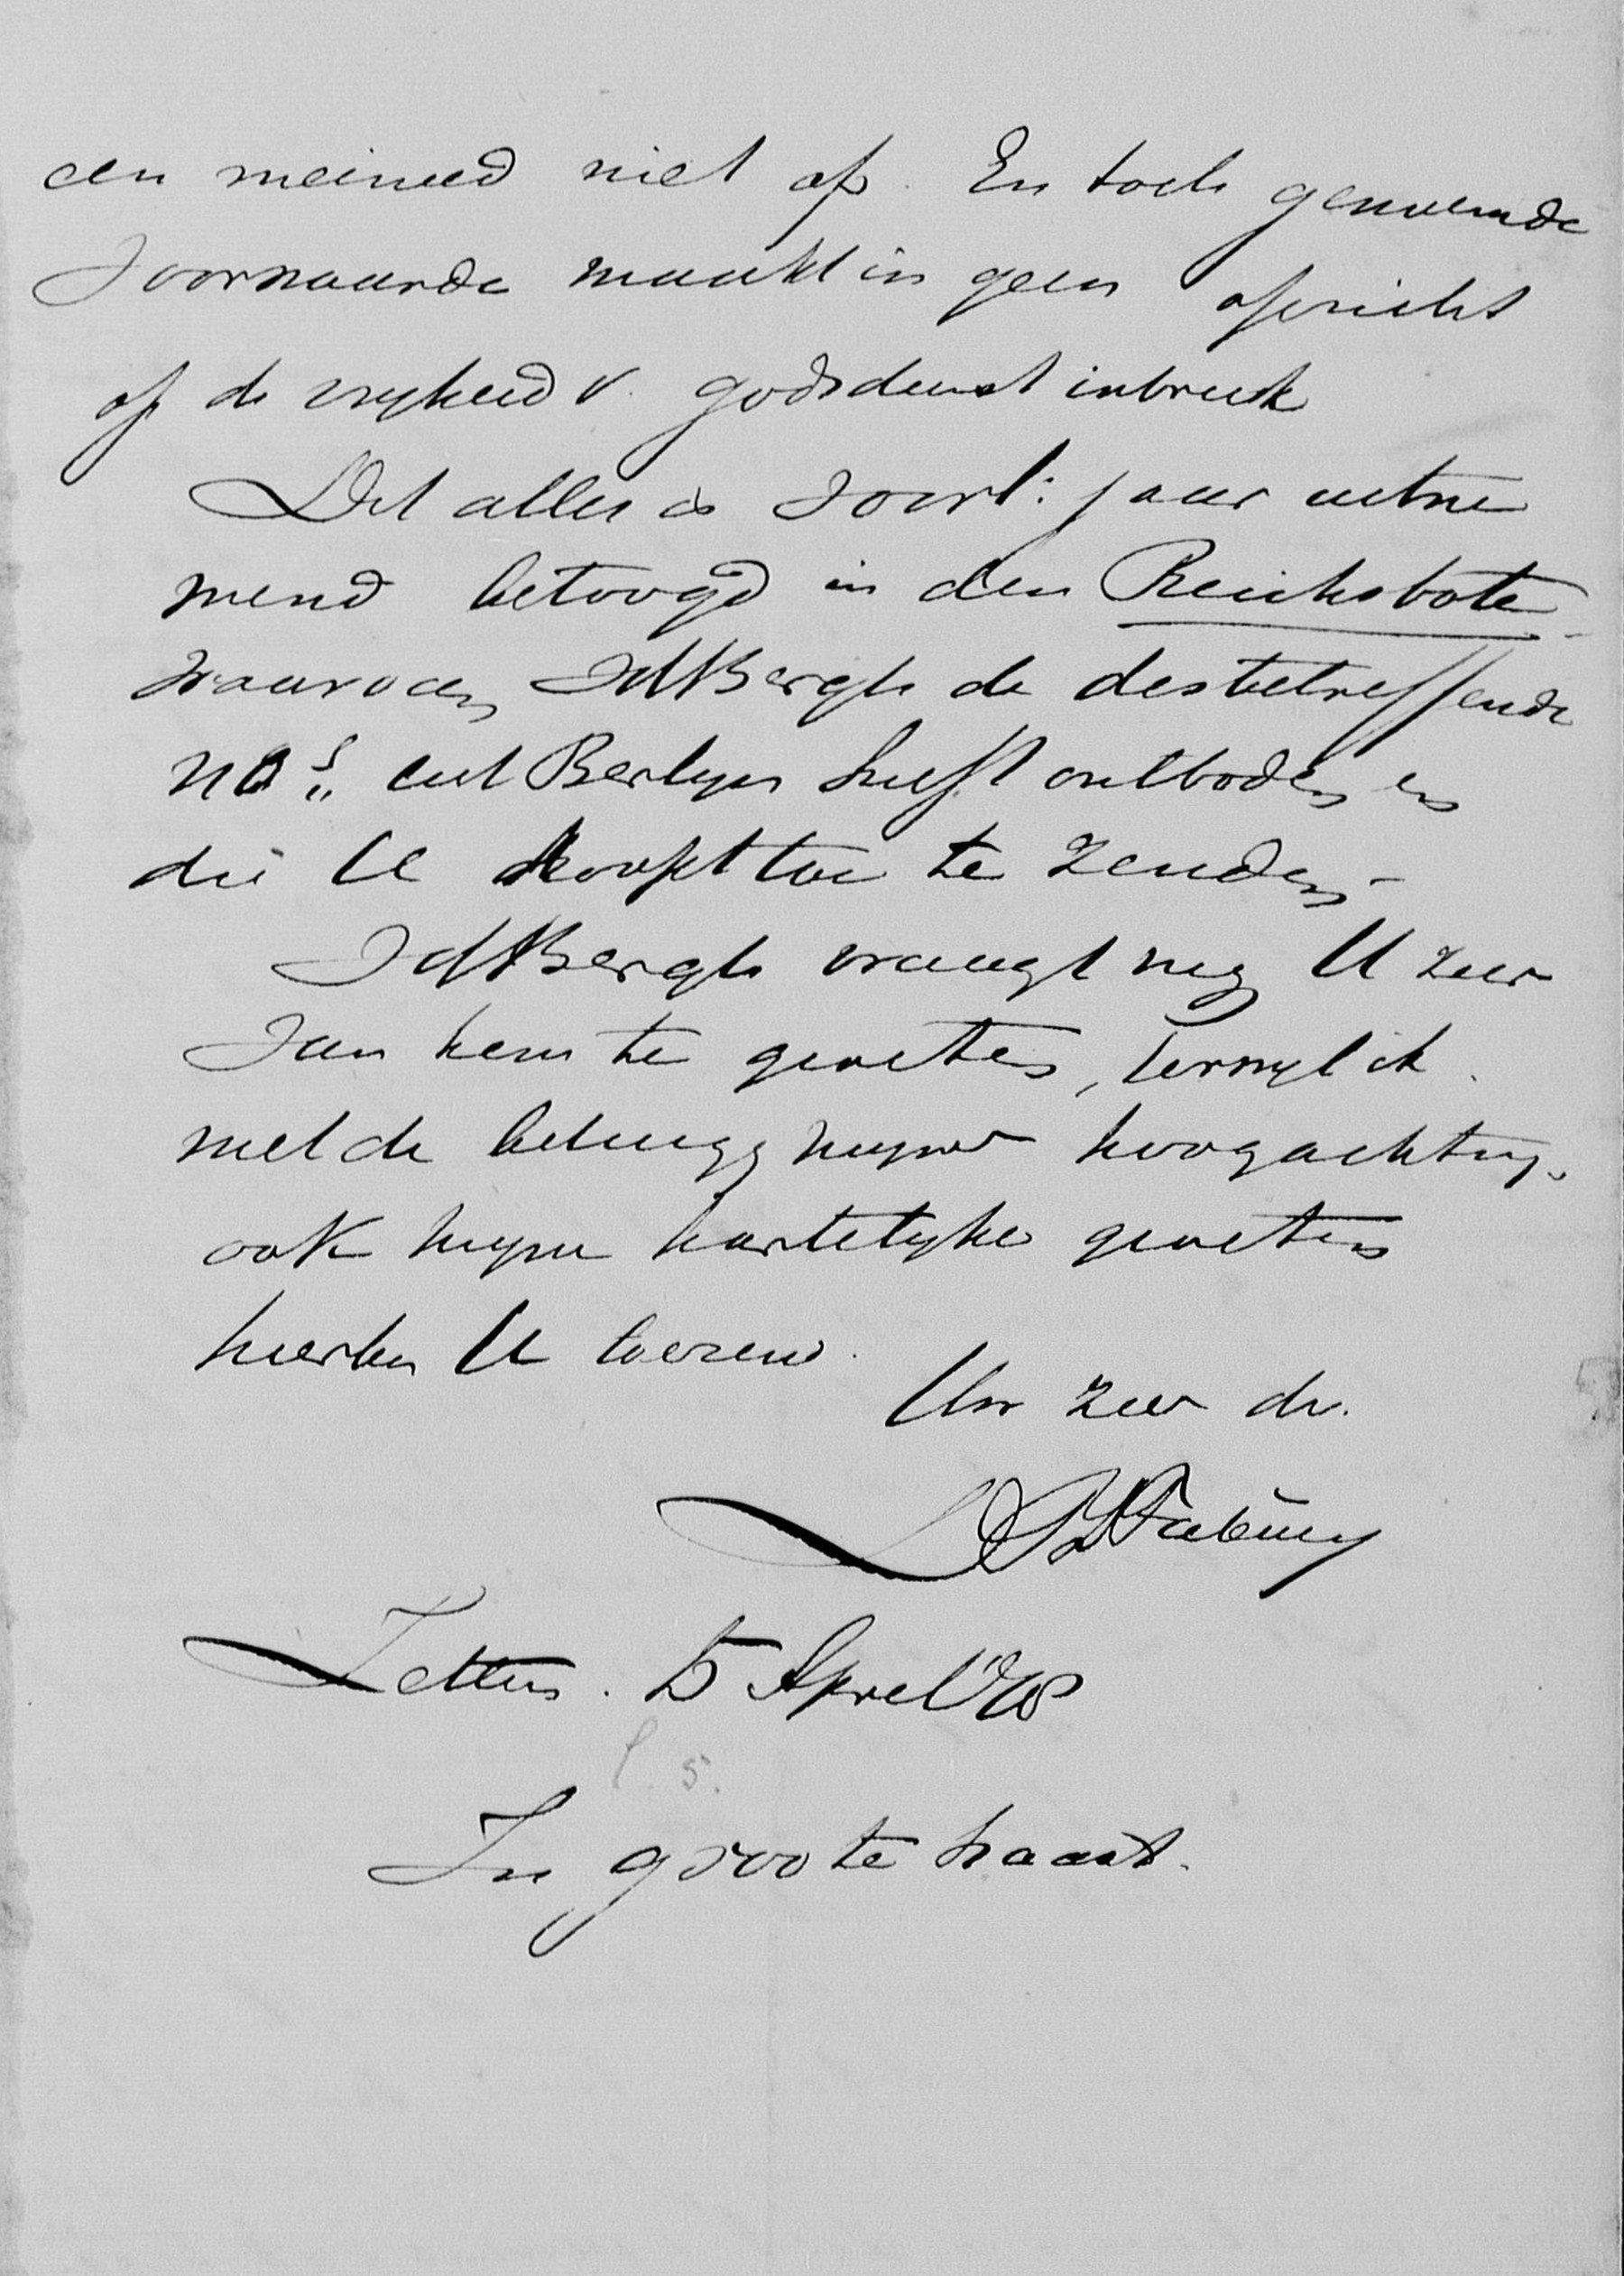 een meineed niet op. En toch genoemde
voorwaarde maakt in geen opzicht
op de vryheid v. godsdienst inbreuk
Dit alles is voorl: jaar uitne
mend betoogd in den Reichsbote
waarvan VdBergh de desbetreffende
nos. uit Berlyn heeft ontboden en
die U hoopt toe te zenden
VdBergh vraagt my U zeer
van hem te groeten, terwyl ik
met de betuigg myner hoogachting
ook myne hartelyke groeten
hierby U toezend.
Uw zeer dr.
Fabius
Zetten. 5 April '78
In groote haast.